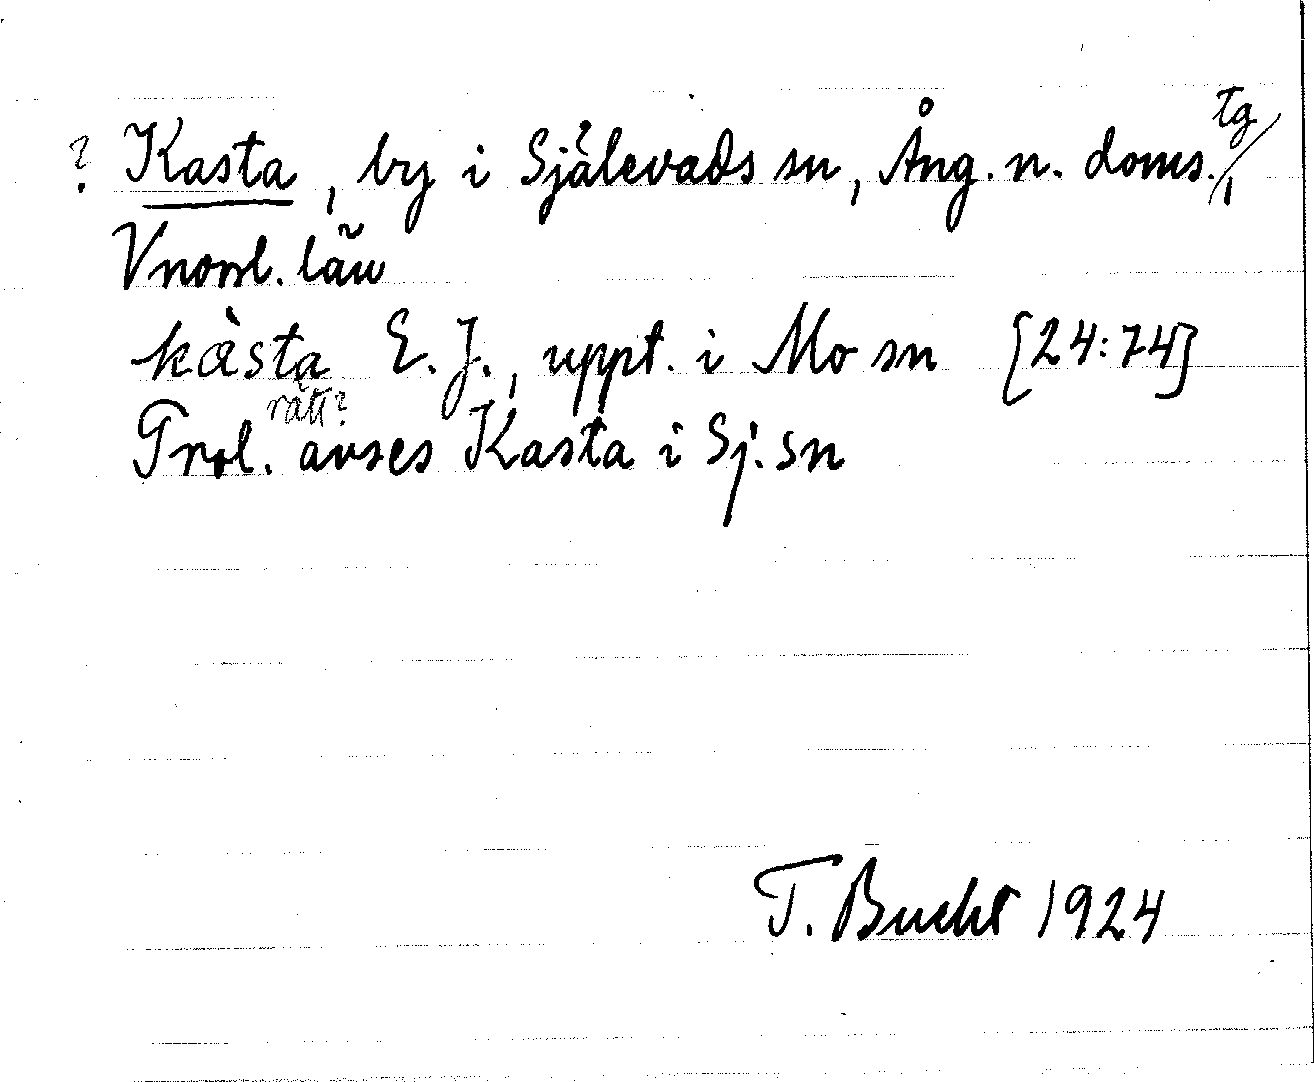 ? Kasta, by i Själevads sn, Ång. n. doms. tg
Vnorrl. län
kàsta E. J., uppt. i Mo sn [24:74]
rätt?
Trol. avses Kasta i Sj. sn
T. Bucht 1924